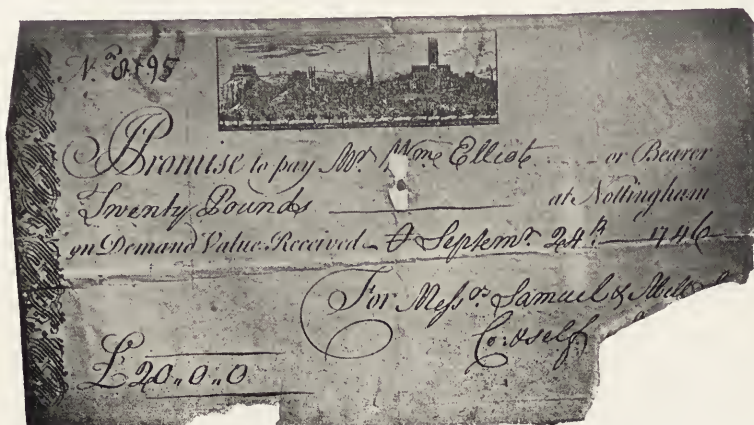 No. 8195
I Promise to pay Mr. Wme Elliot or Bearer
Twenty Pounds at Nottingham
on Demand Value Received Septemr. 24th 1746
For Messrs. Samuel &
Co: & self
£ 20,,0,,0